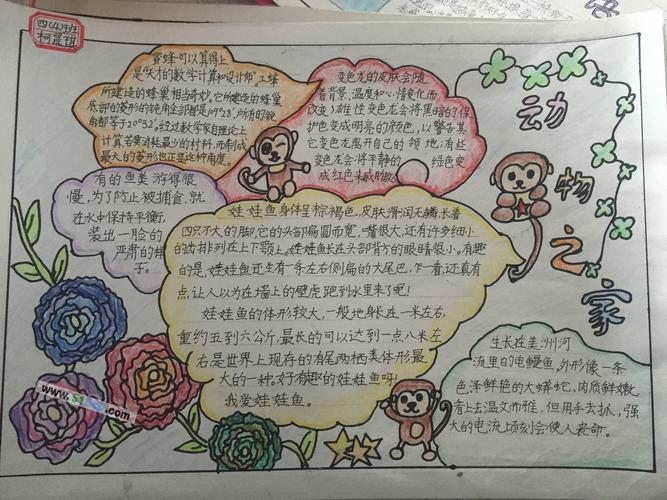 四(4)班
柯晨琪
蜜蜂可以算得上
是"天才的数学计算和设计师"。工蜂
所建造的蜂巢相当奇妙。它所建造的蜂巢
底部的菱形的钝角全部都是109°28′,所有的锐
角都等于70°32′。经过数学家的理论上
计算,若要消耗最少的材料,而制成
最大的菱形也正是这种角度。
变色龙的皮肤会随
着背景、温度和心情变化而
改变;雄性变色龙会将黑暗的保
护色变成明亮的颜色,以警告其
它变色龙离开自己的领地;有些
变色龙会将平静的绿色变
成红色来威吓敌
动物之家
有的鱼类游得很
慢,为了防止被捕食,就
在水中保持平衡,
装出一脸的
严肃的样
子。
娃娃鱼身体呈棕褐色,皮肤滑润无鳞,长着
四只不大的脚,它的头部扁圆而宽,嘴很大,还有许多细小
的齿排列在上下颚上。娃娃鱼长在头部背方的眼睛很小。有趣
的是,娃娃鱼还生有一条左右侧扁的大尾巴,乍一看,还真有
点让人以为在墙上的壁虎跑到水里来了呢!
娃娃鱼的体形较大,一般地身长在一米左右,
重约五到六公斤,最长的可以达到一点八米左
右,是世界上现存的有尾两栖类体形最
大的一种。好有趣的娃娃鱼呀!
我爱娃娃鱼。
生长在美洲河
流里的电鳗鱼,外形像一条
色泽鲜艳的大蟒蛇,肉质鲜嫩,
看上去温文而雅,但用手去抓,强
大的电流,顷刻会使人丧命。